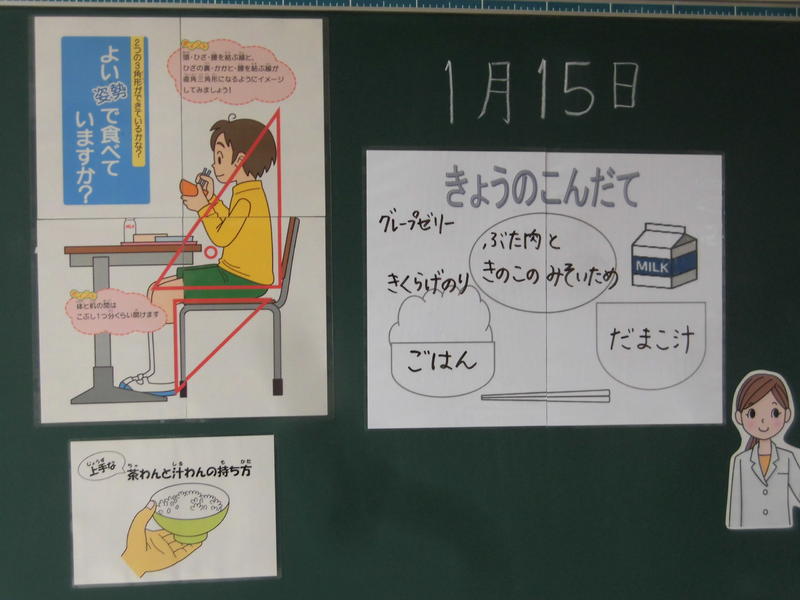 2つの3角形ができているかな?
よい姿勢で食べて
いますか?
ポイント
頭・ひざ・腰を結ぶ線と、
ひざの裏・かかと・腰を結ぶ線が
直角三角形になるようにイメージ
してみましょう!
MILK
ポイント
体と机の間は
こぶし1つ分くらい開けます
上手な
じょうず
茶わんと汁わんの持ち方
ちゃ しる も かた
1月15日
きょうのこんだて
グレープゼリー
ぶた肉と
きのこのみそいため
MILK
きくらげのり
ごはん
だまこ汁